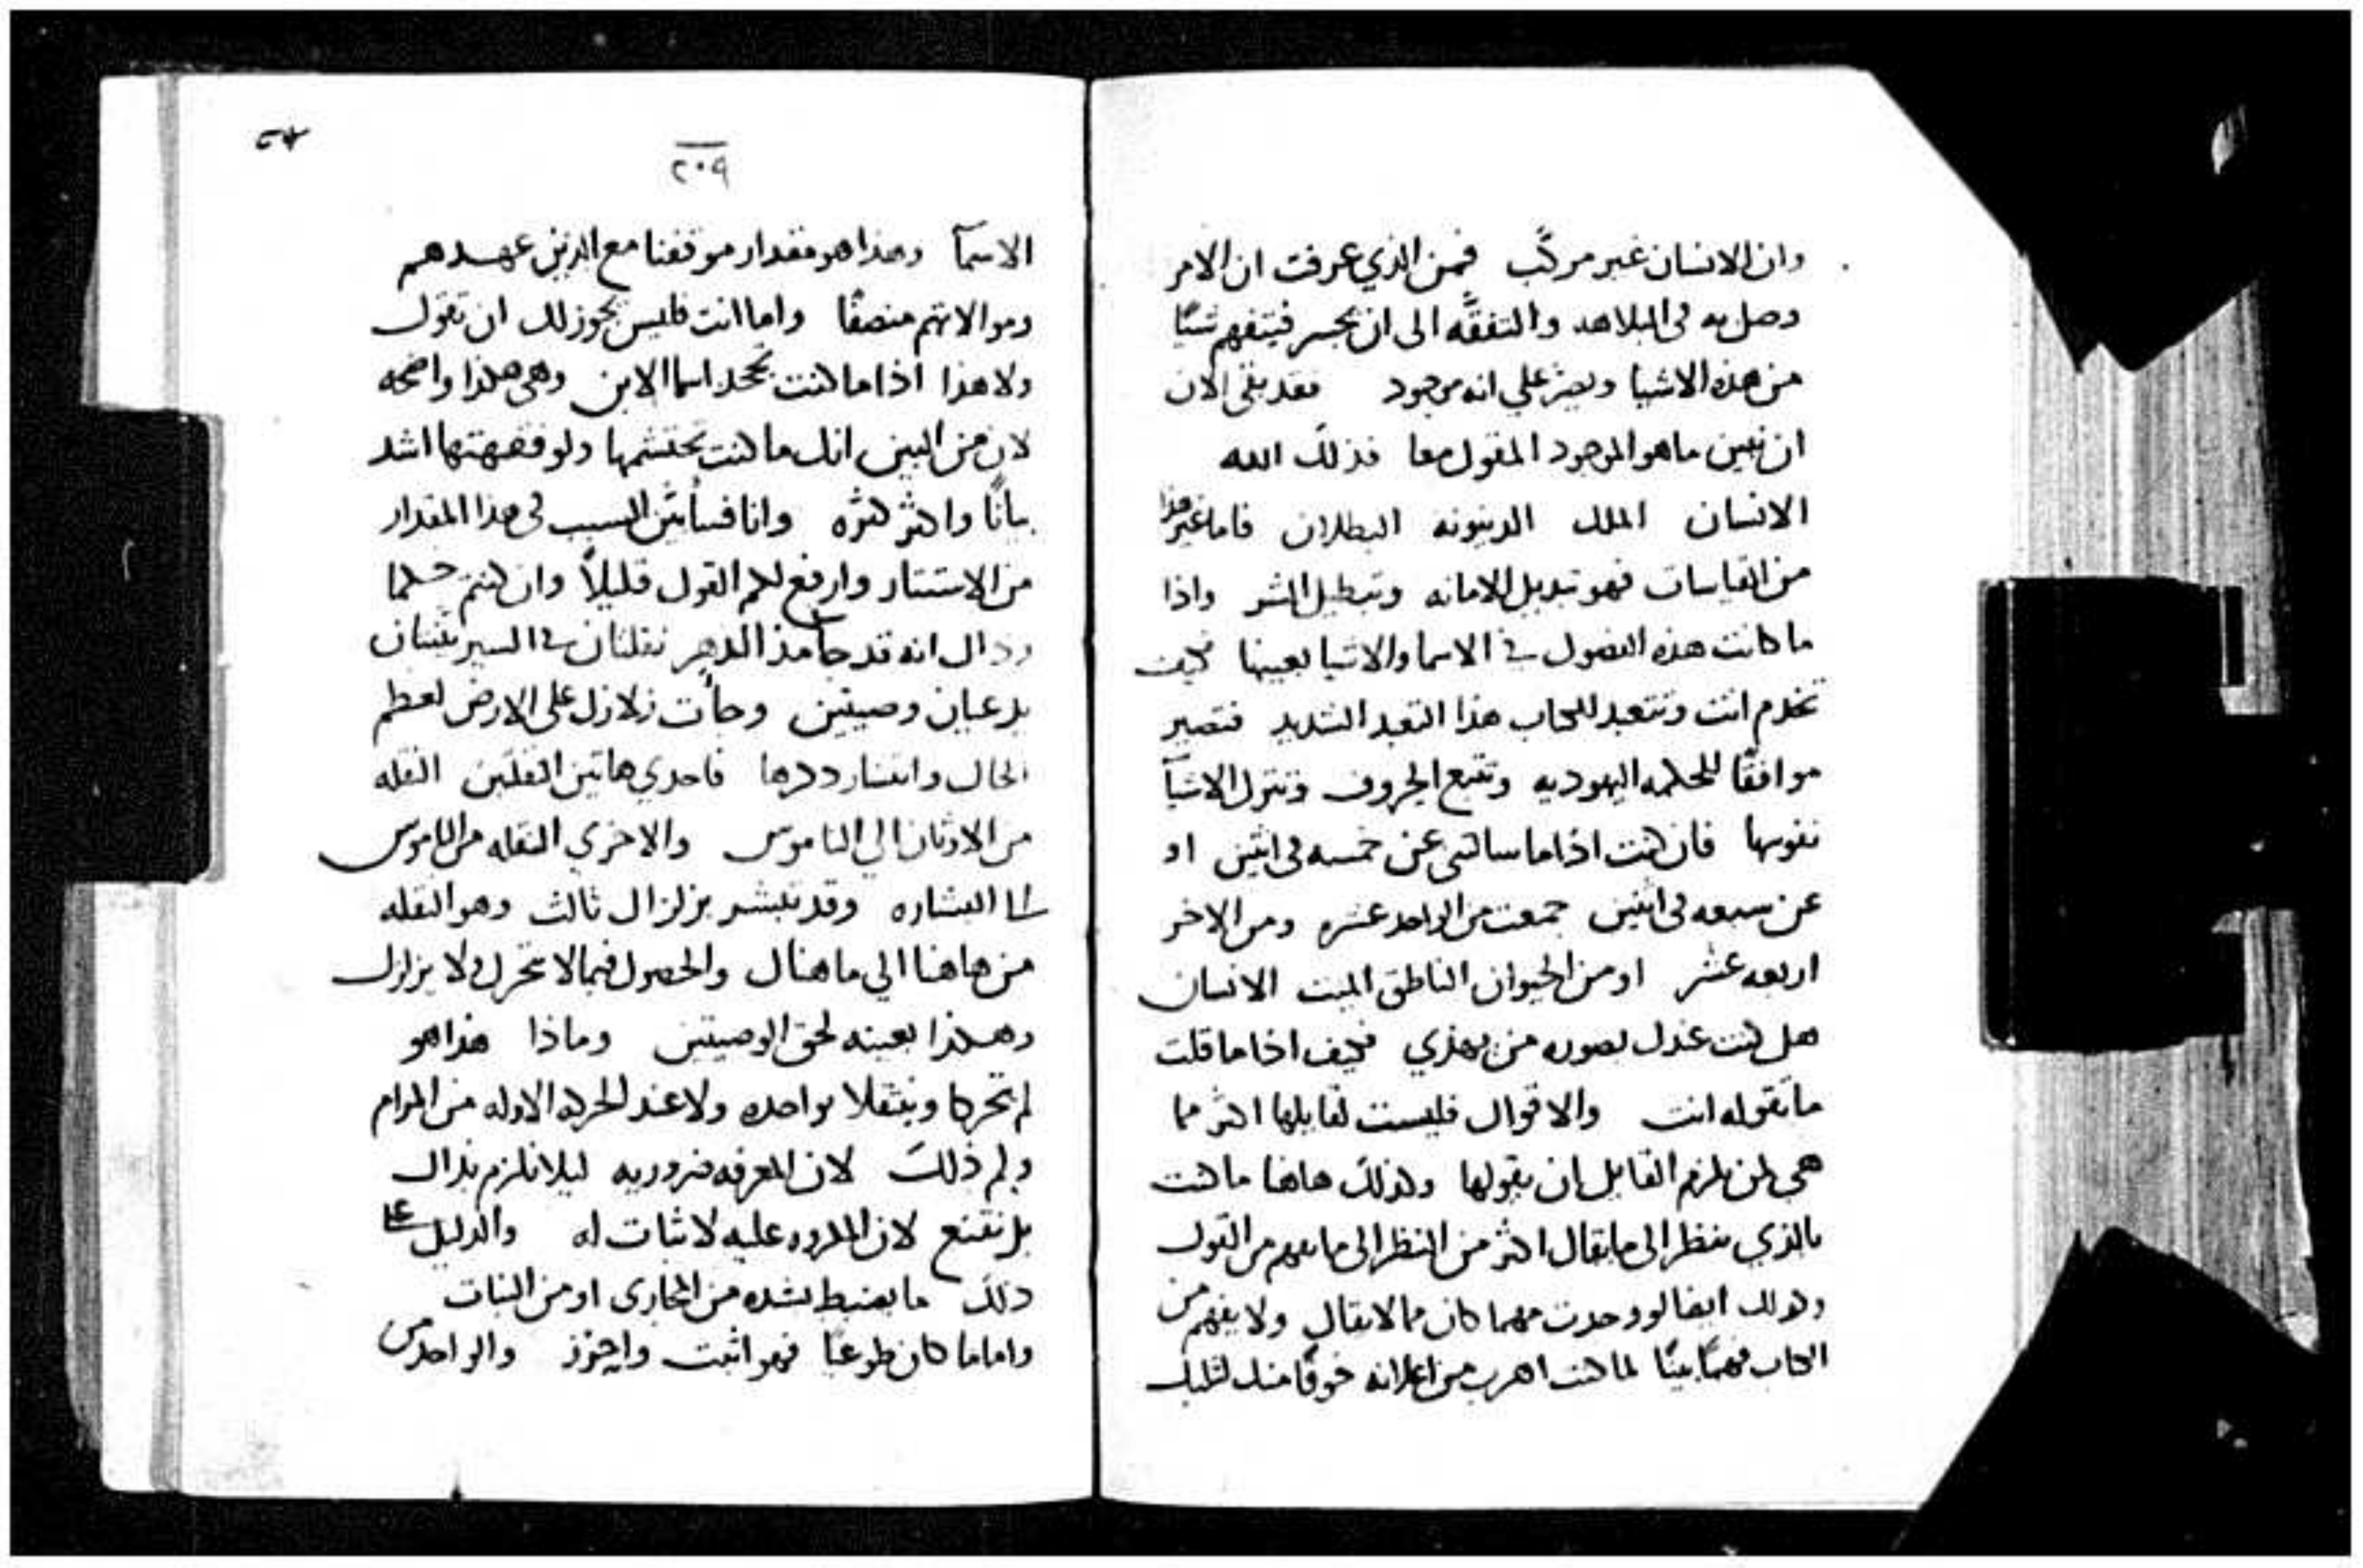 وان الانسان غير مركب فمن الذي عرفت ان الامر
وصل به في البلاهه والتفقه الى ان يجسر فيتفهم شيًا
من هذه الاشيا ويصبر علي انه موجود فقد بقى الان
ان نبين ما هو الموجود المقول معا فذلك الله
الانسان الملك الدينونه البطلان فاما غير هذا
من القياسات فهو تبديل الامانه وتبطيل السر واذا
ما كانت هذه الفصول في الاسما والاشيا بعينها فكيف
تخدم انت وتتعبد للكتاب هذا التعبد الشديد فتصير
موافقًا للحكمه اليهوديه وتتبع الحروف وتترك الاشيآ
نفوسها فان كنت اذا ما سالتني عن خمسه في اثنين او
عن سبعه في اثنين جمعت من الواحد عشره ومن الاخر
اربعه عشر او من الحيوان الناطق الميت الانسان
هل كنت عندك بصوره من يهذي فكيف اذا ما قلت
ما تقوله انت والاقوال فليست لقايلها اكثر مما
هي لمن يلزم القايل ان يقولها وكذلك هاهنا ما كنت
بالذي ينظر الى ما يقال اكثر من النظر الى ما يفهم من القول
وكذلك ايضا لو وجدت مهما كان مما لا يقال ولا يفهم من
الكتاب فهمًا بينًا لما كنت اهرب من اعلانه خوفًا منك لثلبك
٢٠٩
الاسمآ وهذا هو مقدار موقفنا مع الذين عهدهم
وموالاتهم منصفًا واما انت فليس يجوز لك ان تقول
ولا هذا اذا ما كنت تجحد اسما الابن وهي هكذا واضحه
لان من البين انك ما كنت تحتشمها ولو فقهتها اشد
بيانًا واكثر كثره وانا فسأبين السبب في هذا المقدار
من الاستتار وارفع لكم القول قليلاً وان كنتم حكما
وذاك انه قد جا مذ الدهر نقلتان في السير ثنتان
يدعيان وصيتين وجأت زلازل على الارض لعظم
الحال وانتشار ذكرها فاحدي هاتين النقلتين النقله
من الاوثان الي الناموس والاخري النقله من الناموس
الى البشاره وقد نبشر بزلزال ثالث وهو النقله
من هاهنا الي ما هناك والحصول فيما لا يتحرك ولا يزلزل
وهكذا بعينه لحق الوصيتين وماذا هذا هو
لم تحركا وينتقلا بواحده ولا عند الحركه الاوله من المرام
ولم ذلك لان المعرفه ضروريه ليلا نلزم بذاك
بل نقتنع لان المكروه عليه لا ثبات له والدليل على
ذلك ما يضبط بشده من المجاري او من النبات
واما ما كان طوعيًا فهو اثبت واحوز والواحد من